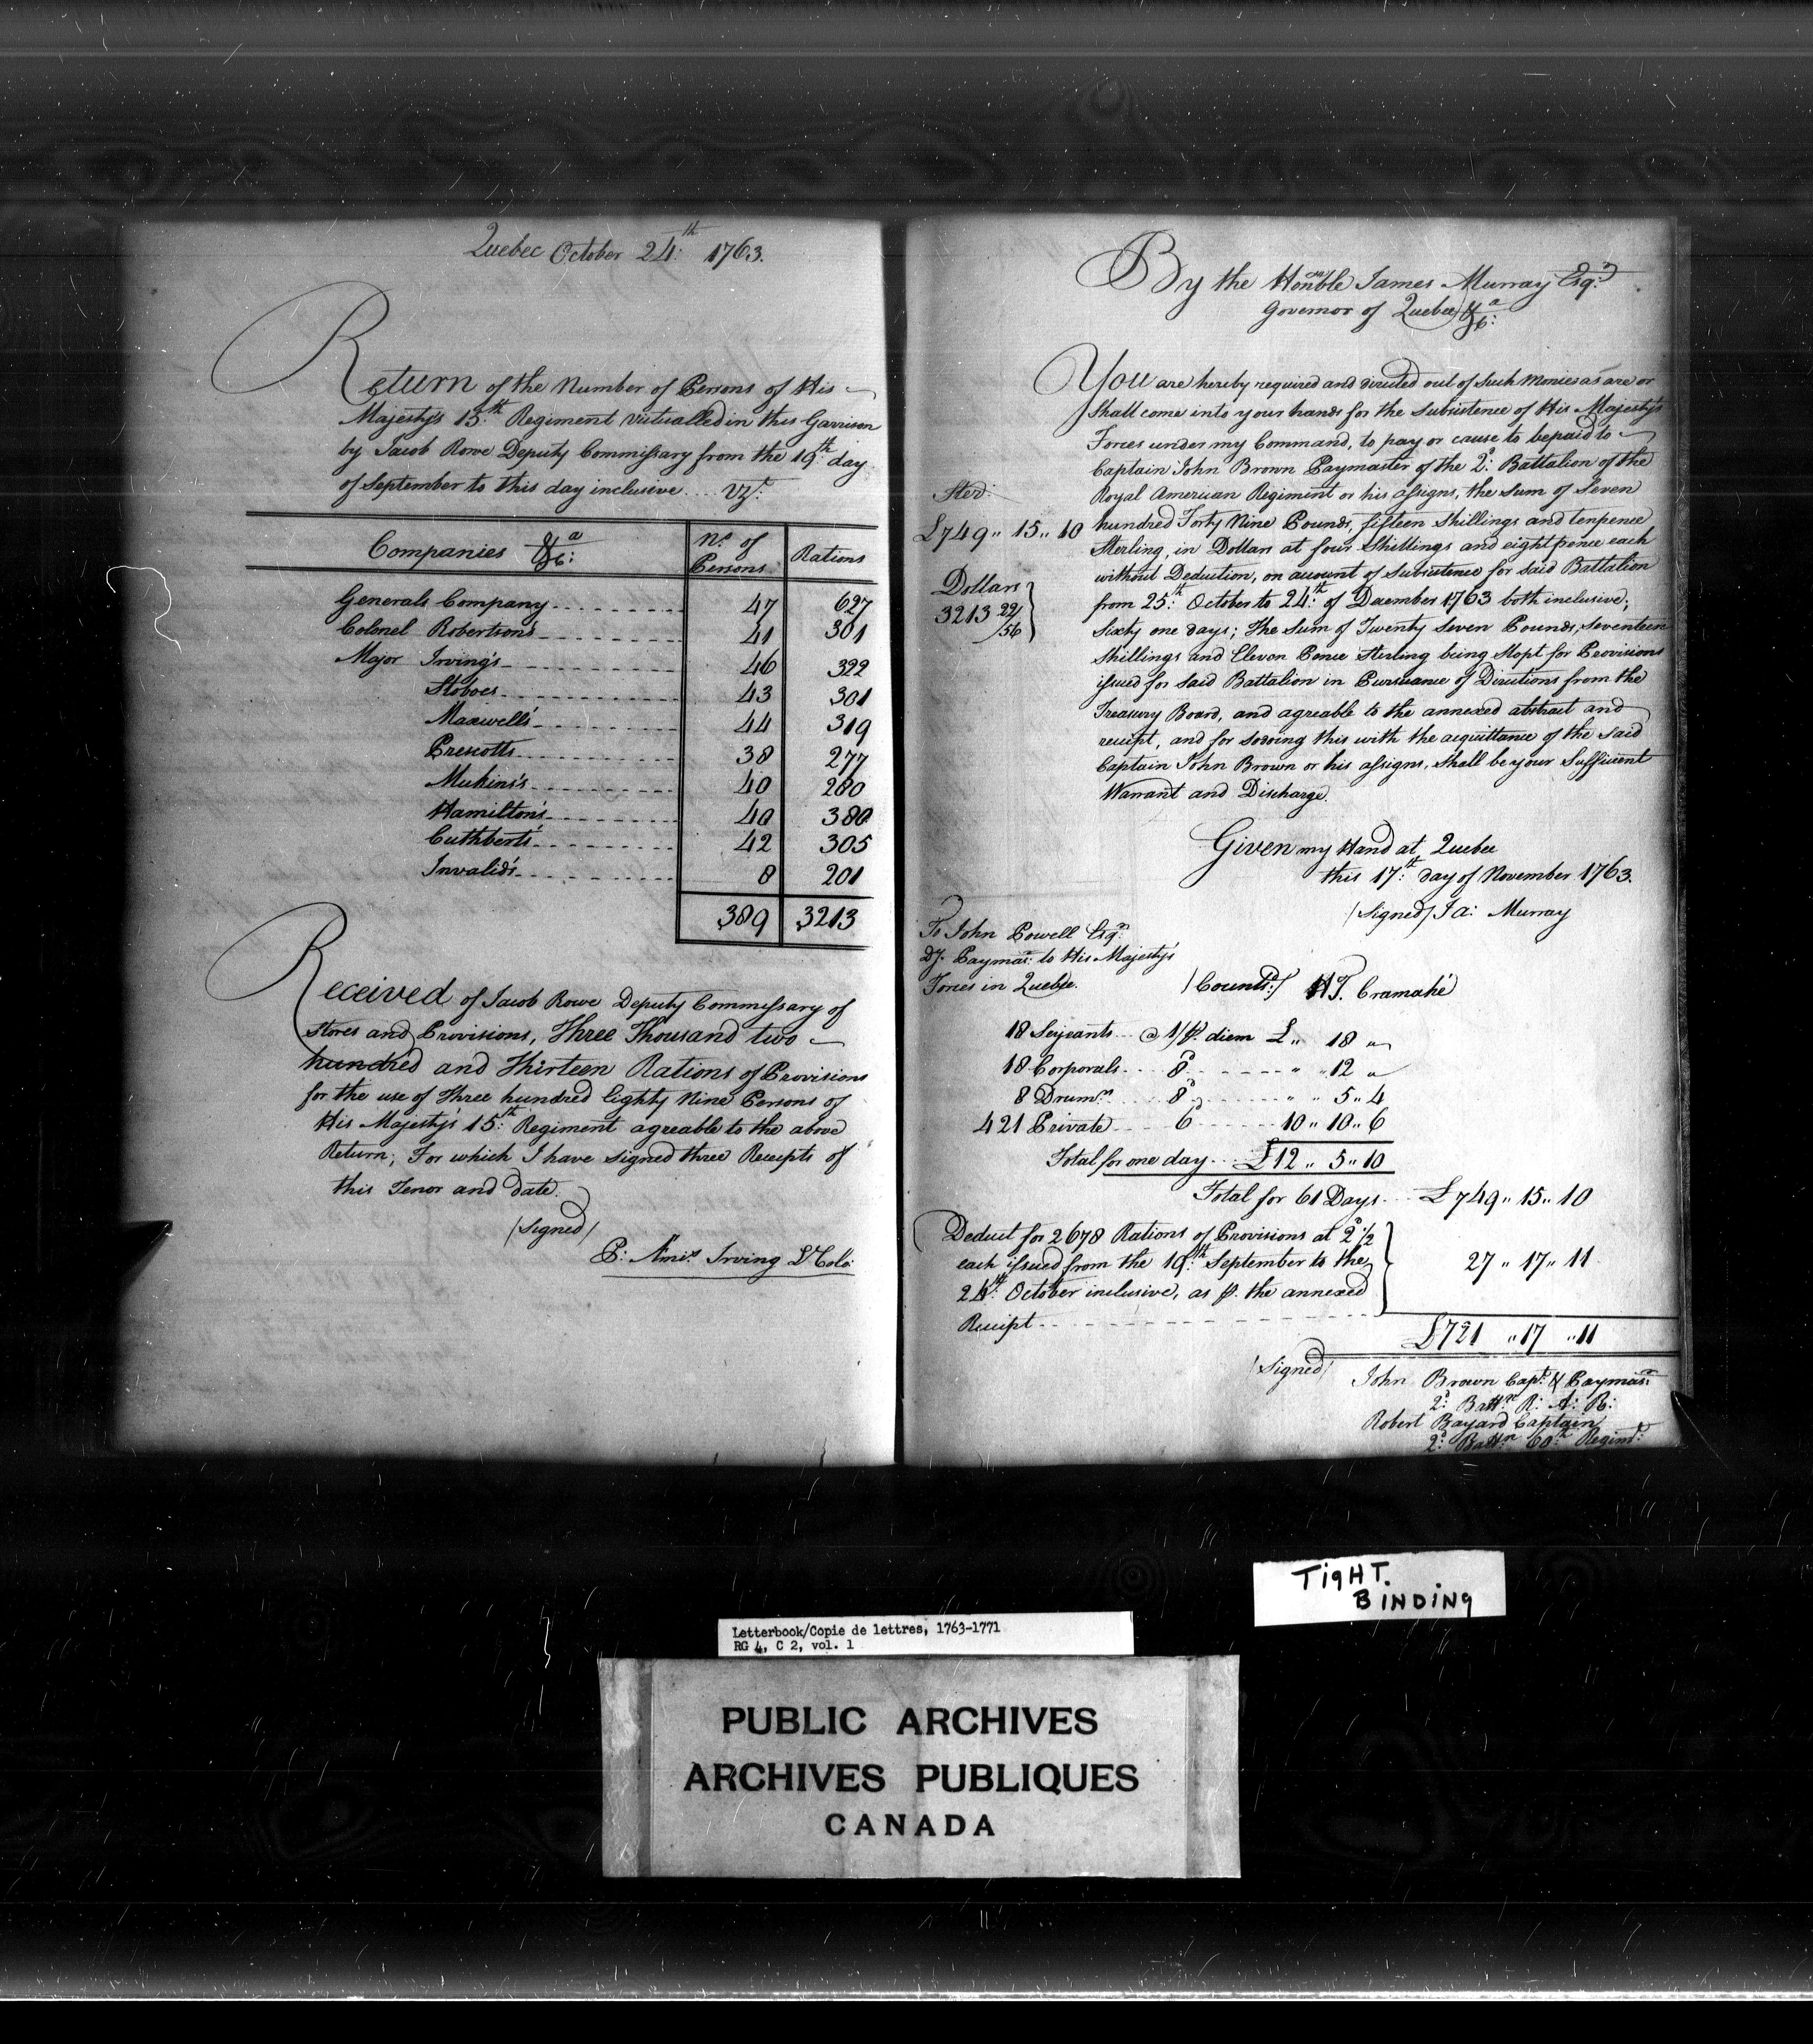 Quebec October 24:th 1763.
Return of the Number of Persons of His
Majesty's 15:th Regiment Victualled in this Garrison
by Jacob Rowe Deputy Commissary from the 19:th day
of September to this day inclusive .... Vizt:
Companies &ca: No. of Persons Rations
Generals Company 47 627
Colonel Robertson's 41 301
Major Irving's 46 322
Stoboes 43 301
Maxwell's 44 319
Prescotts 38 277
Mukins's 40 280
Hamilton's 40 380
Cuthbert's 42 305
Invalid's 8 201
389 3213
Received of Jacob Rowe Deputy Commissary of
Stores and Provisions, Three Thousand two
hundred and Thirteen Rations of Provisions
for the use of Three hundred Eighty Nine Persons of
His Majesty's 15:th Regiment agreable to the above
Return; For which I have signed three Receipts of
this Tenor and date.
/Signed/
P: Æmis Irving Lt Colo:
By the Honble James Murray Esqr:
Governor of Quebec &ca:
You are hereby required and directed out of Such Monies as are or
Shall come into your hands for the Subsistence of His Majesty's
Forces under my Command, to pay or cause to be paid to
Captain John Brown Paymaster of the 2d: Battalion of the
Royal American Regiment or his assigns, the Sum of Seven
hundred Forty Nine Pounds, fifteen Shillings and tenpence
Sterling, in Dollars at four Shillings and eight pence each
without Deduction, on account of Subsistence for said Battalion
from 25:th October to 24:th of December 1763 both inclusive;
Sixty one days; The Sum of Twenty Seven Pounds, Seventeen
Shillings and Eleven Pence Sterling being Stopt for Provisions
issued for said Battalion in Pursuance of Directions from the
Treasury Board, and agreable to the annexed abstract and
receipt, and for so doing this with the acquittance of the Said
Captain John Brown or his assigns, shall be your Sufficient
Warrant and Discharge.
Ster:
£749 ,, 15 ,, 10
Dollars
3213 22/56
Given my Hand at Quebec
this 17:th day of November 1763.
/Signed/ Ja: Murray
To John Powell Esqr:
Dy. Paymar: to His Majesty's
Forces in Quebec.
/Countsd:/ H T. Cramahé
18 Serjeants @ 1/ p. diem £ ,, 18 ,,
18 Corporals 8d ,, 12 ,,
8 Drumrs 8d ,, 5 ,, 4
421 Private 6d 10 ,, 10 ,, 6
Total for one day £12 ,, 5 ,, 10
Total for 61 Days £749 ,, 15 ,, 10
Deduct for 2678 Rations of Provisions at 2d 1/2
each issued from the 19:th September to the
24:th October inclusive, as p. the annexed
Receipt
27 ,, 17 ,, 11
£721 ,, 17 ,, 11
/Signed/ John Brown Capt: & Paymar:
2d: Battn R: A: R:
Robert Bayard Captain
2d: Battn 60:th Regimt:
TIGHT.
BINDING
Letterbook/Copie de lettres, 1763-1771
RG 4, C 2, vol. 1
PUBLIC ARCHIVES
ARCHIVES PUBLIQUES
CANADA